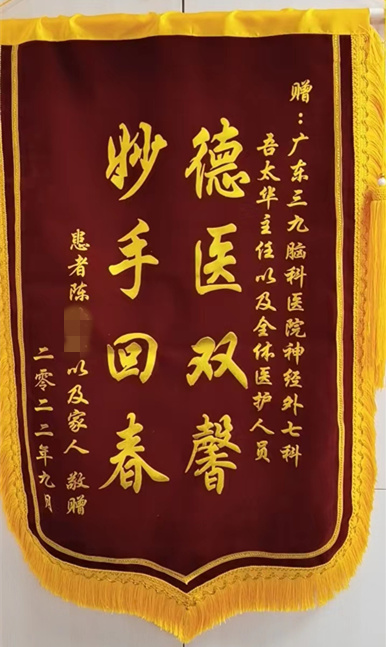 赠：广东三九脑科医院神经外七科
吾太华主任以及全体医护人员
德医双馨
妙手回春
患者陈 以及家人 敬赠
二零二二年九月